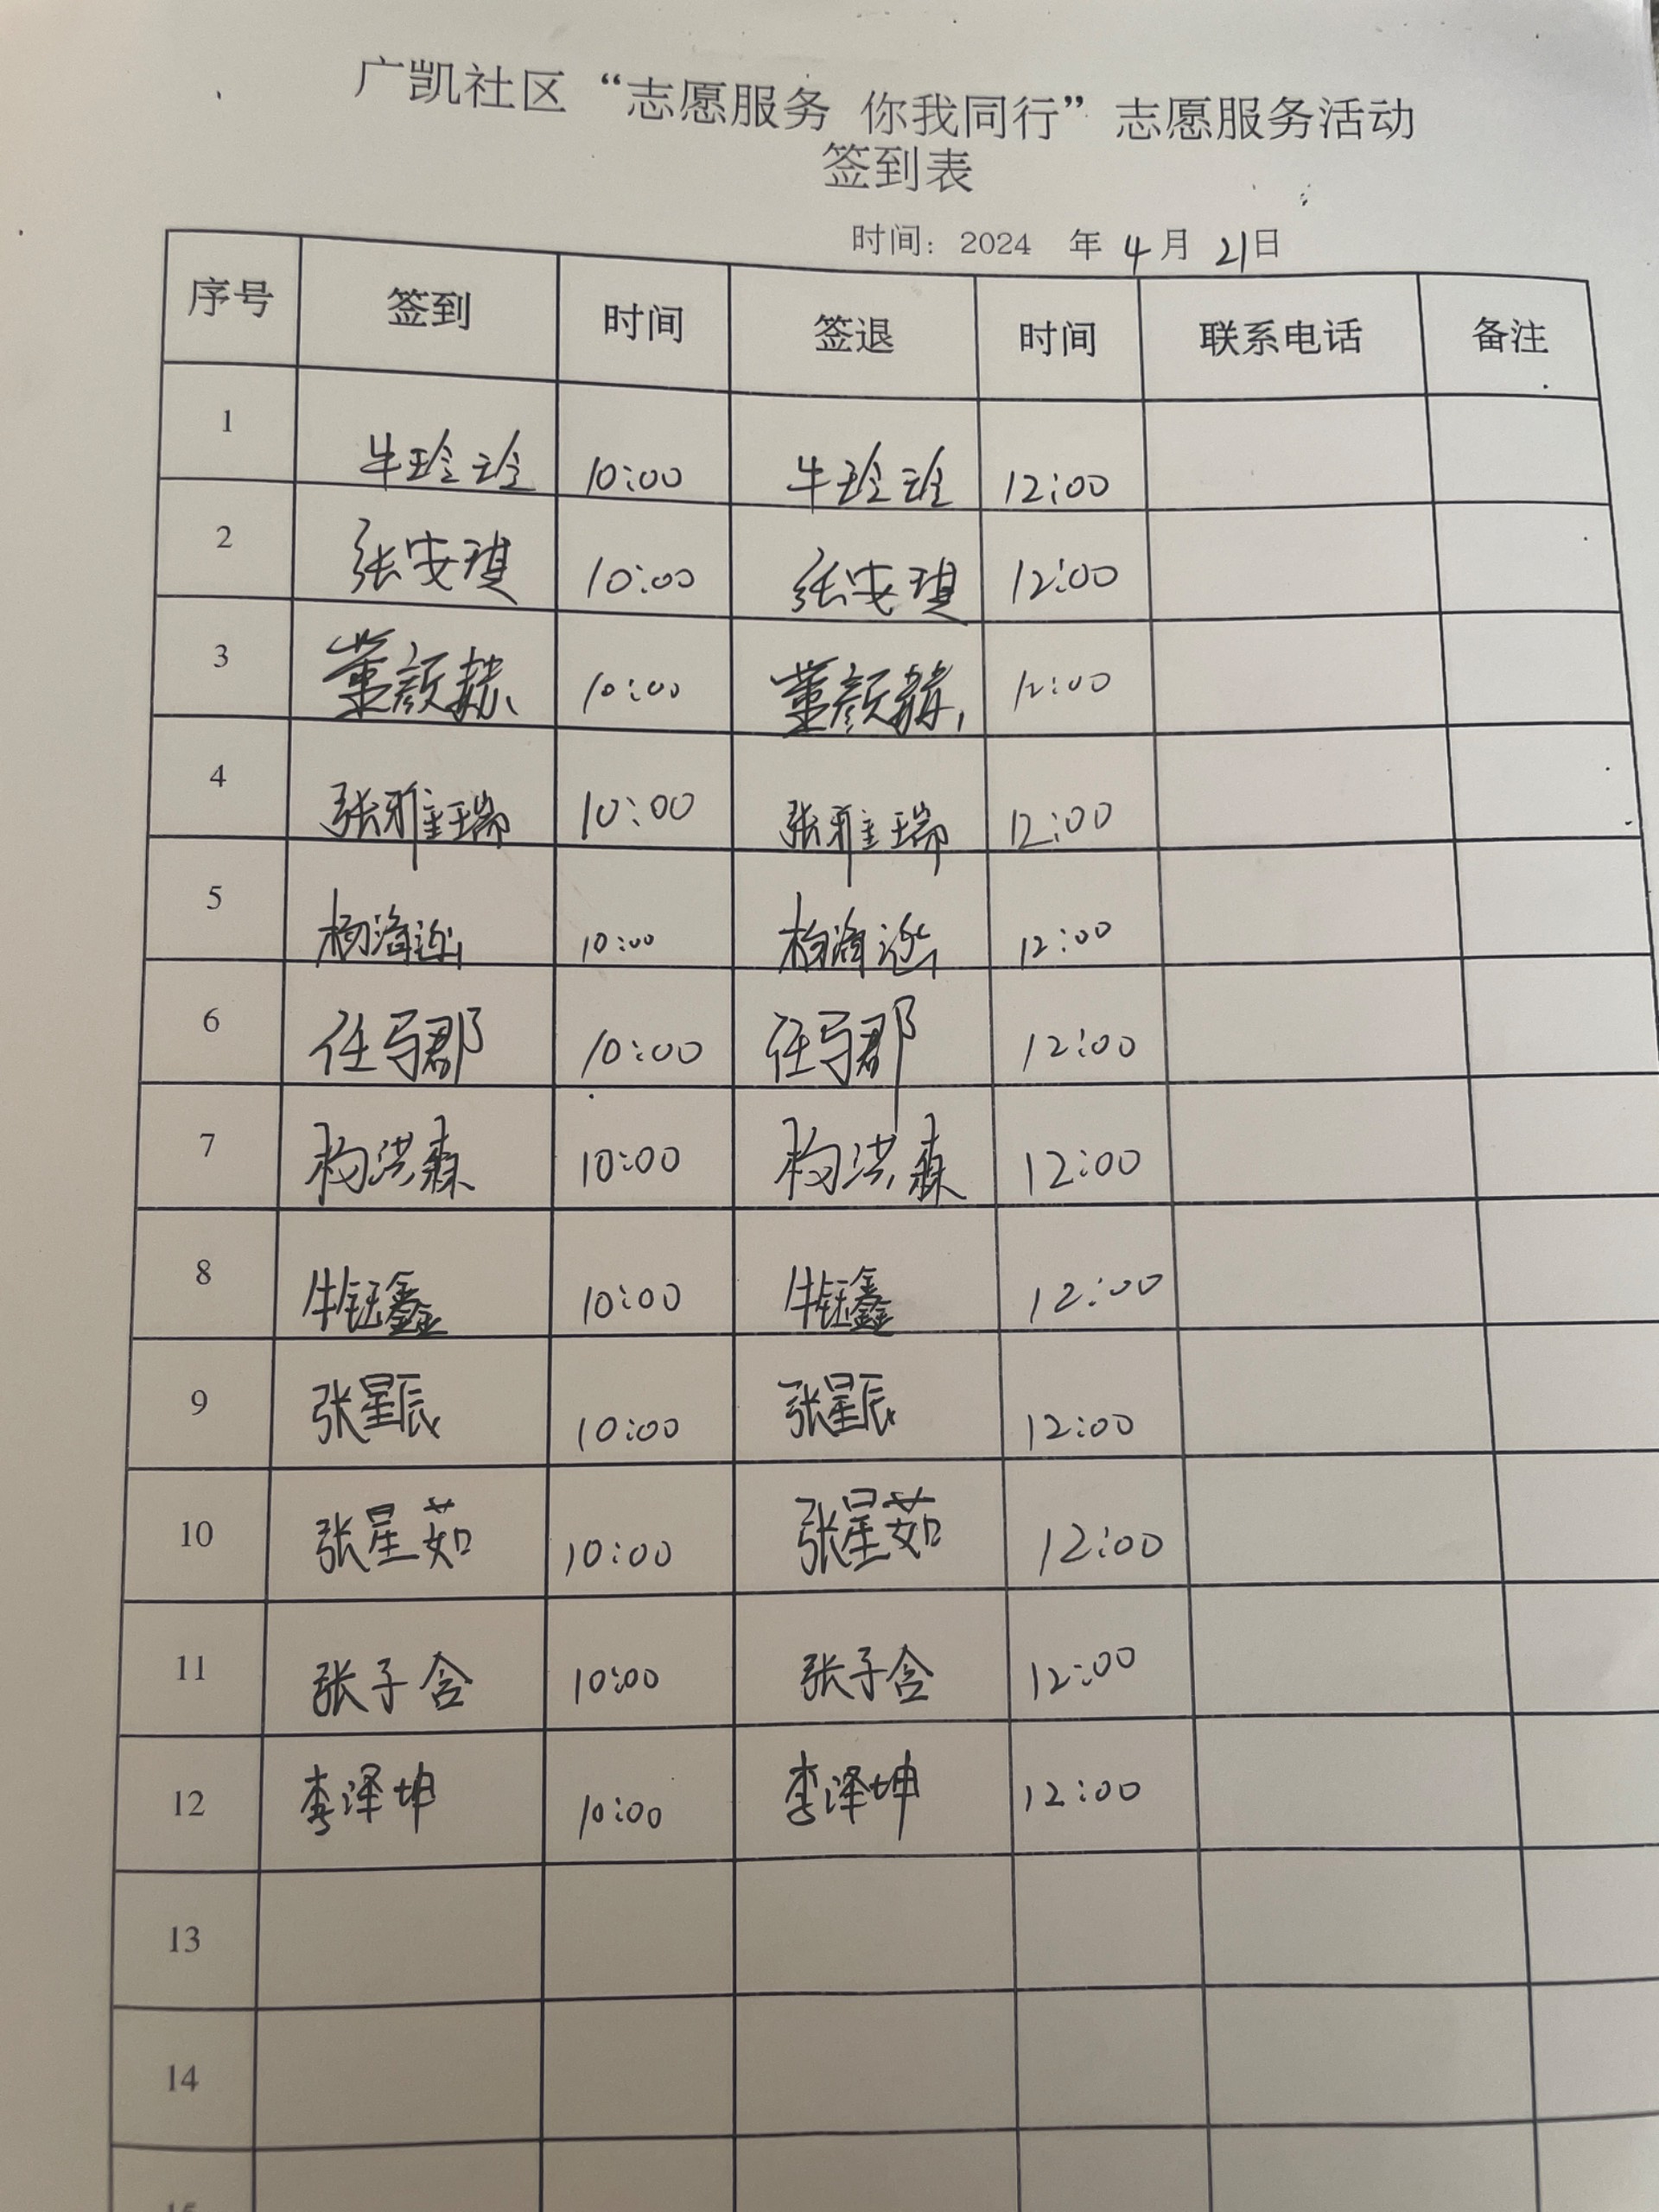 广凯社区“志愿服务 你我同行”志愿服务活动
签到表
时间：2024 年 4 月 21 日
序号 签到 时间 签退 时间 联系电话 备注
1 牛玲玲 10:00 牛玲玲 12:00
2 张安琪 10:00 张安琪 12:00
3 董颜赫 10:00 董颜赫 12:00
4 张雅瑞 10:00 张雅瑞 12:00
5 杨海 10:00 杨海 12:00
6 任 郡 10:00 任 郡 12:00
7 杨洪森 10:00 杨洪森 12:00
8 牛钰鑫 10:00 牛钰鑫 12:00
9 张星辰 10:00 张星辰 12:00
10 张星茹 10:00 张星茹 12:00
11 张子含 10:00 张子含 12:00
12 李泽坤 10:00 李泽坤 12:00
13
14
15